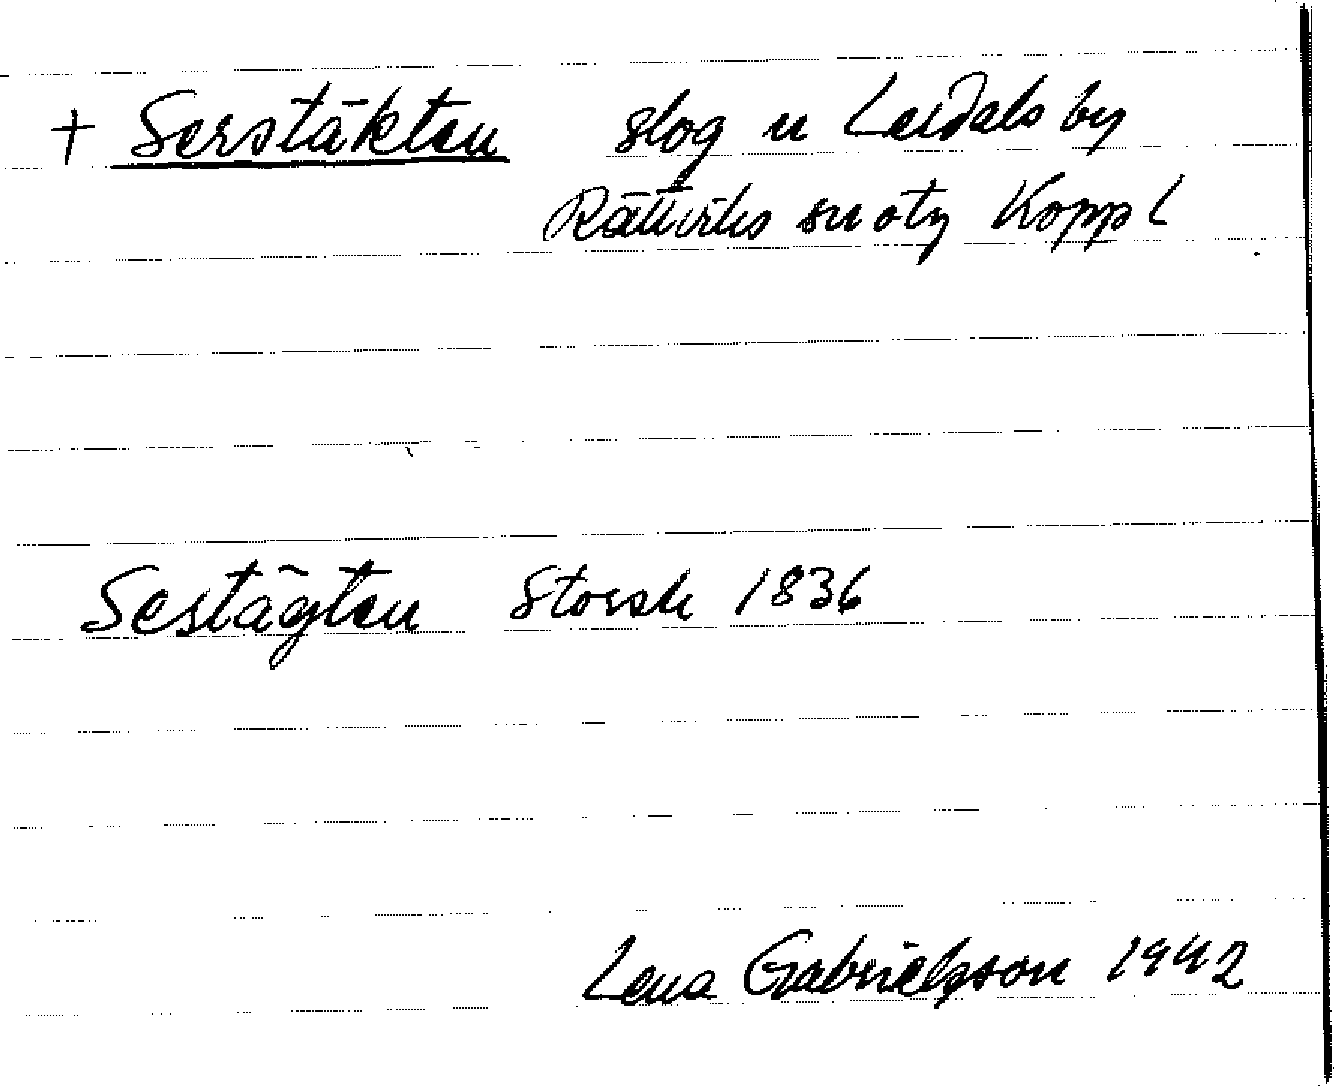 + Serstäkten slog u Leidals by
Rättviks sn oty Kopp l
Sestägten Storsk 1836
Lena Gabrielsson 1942